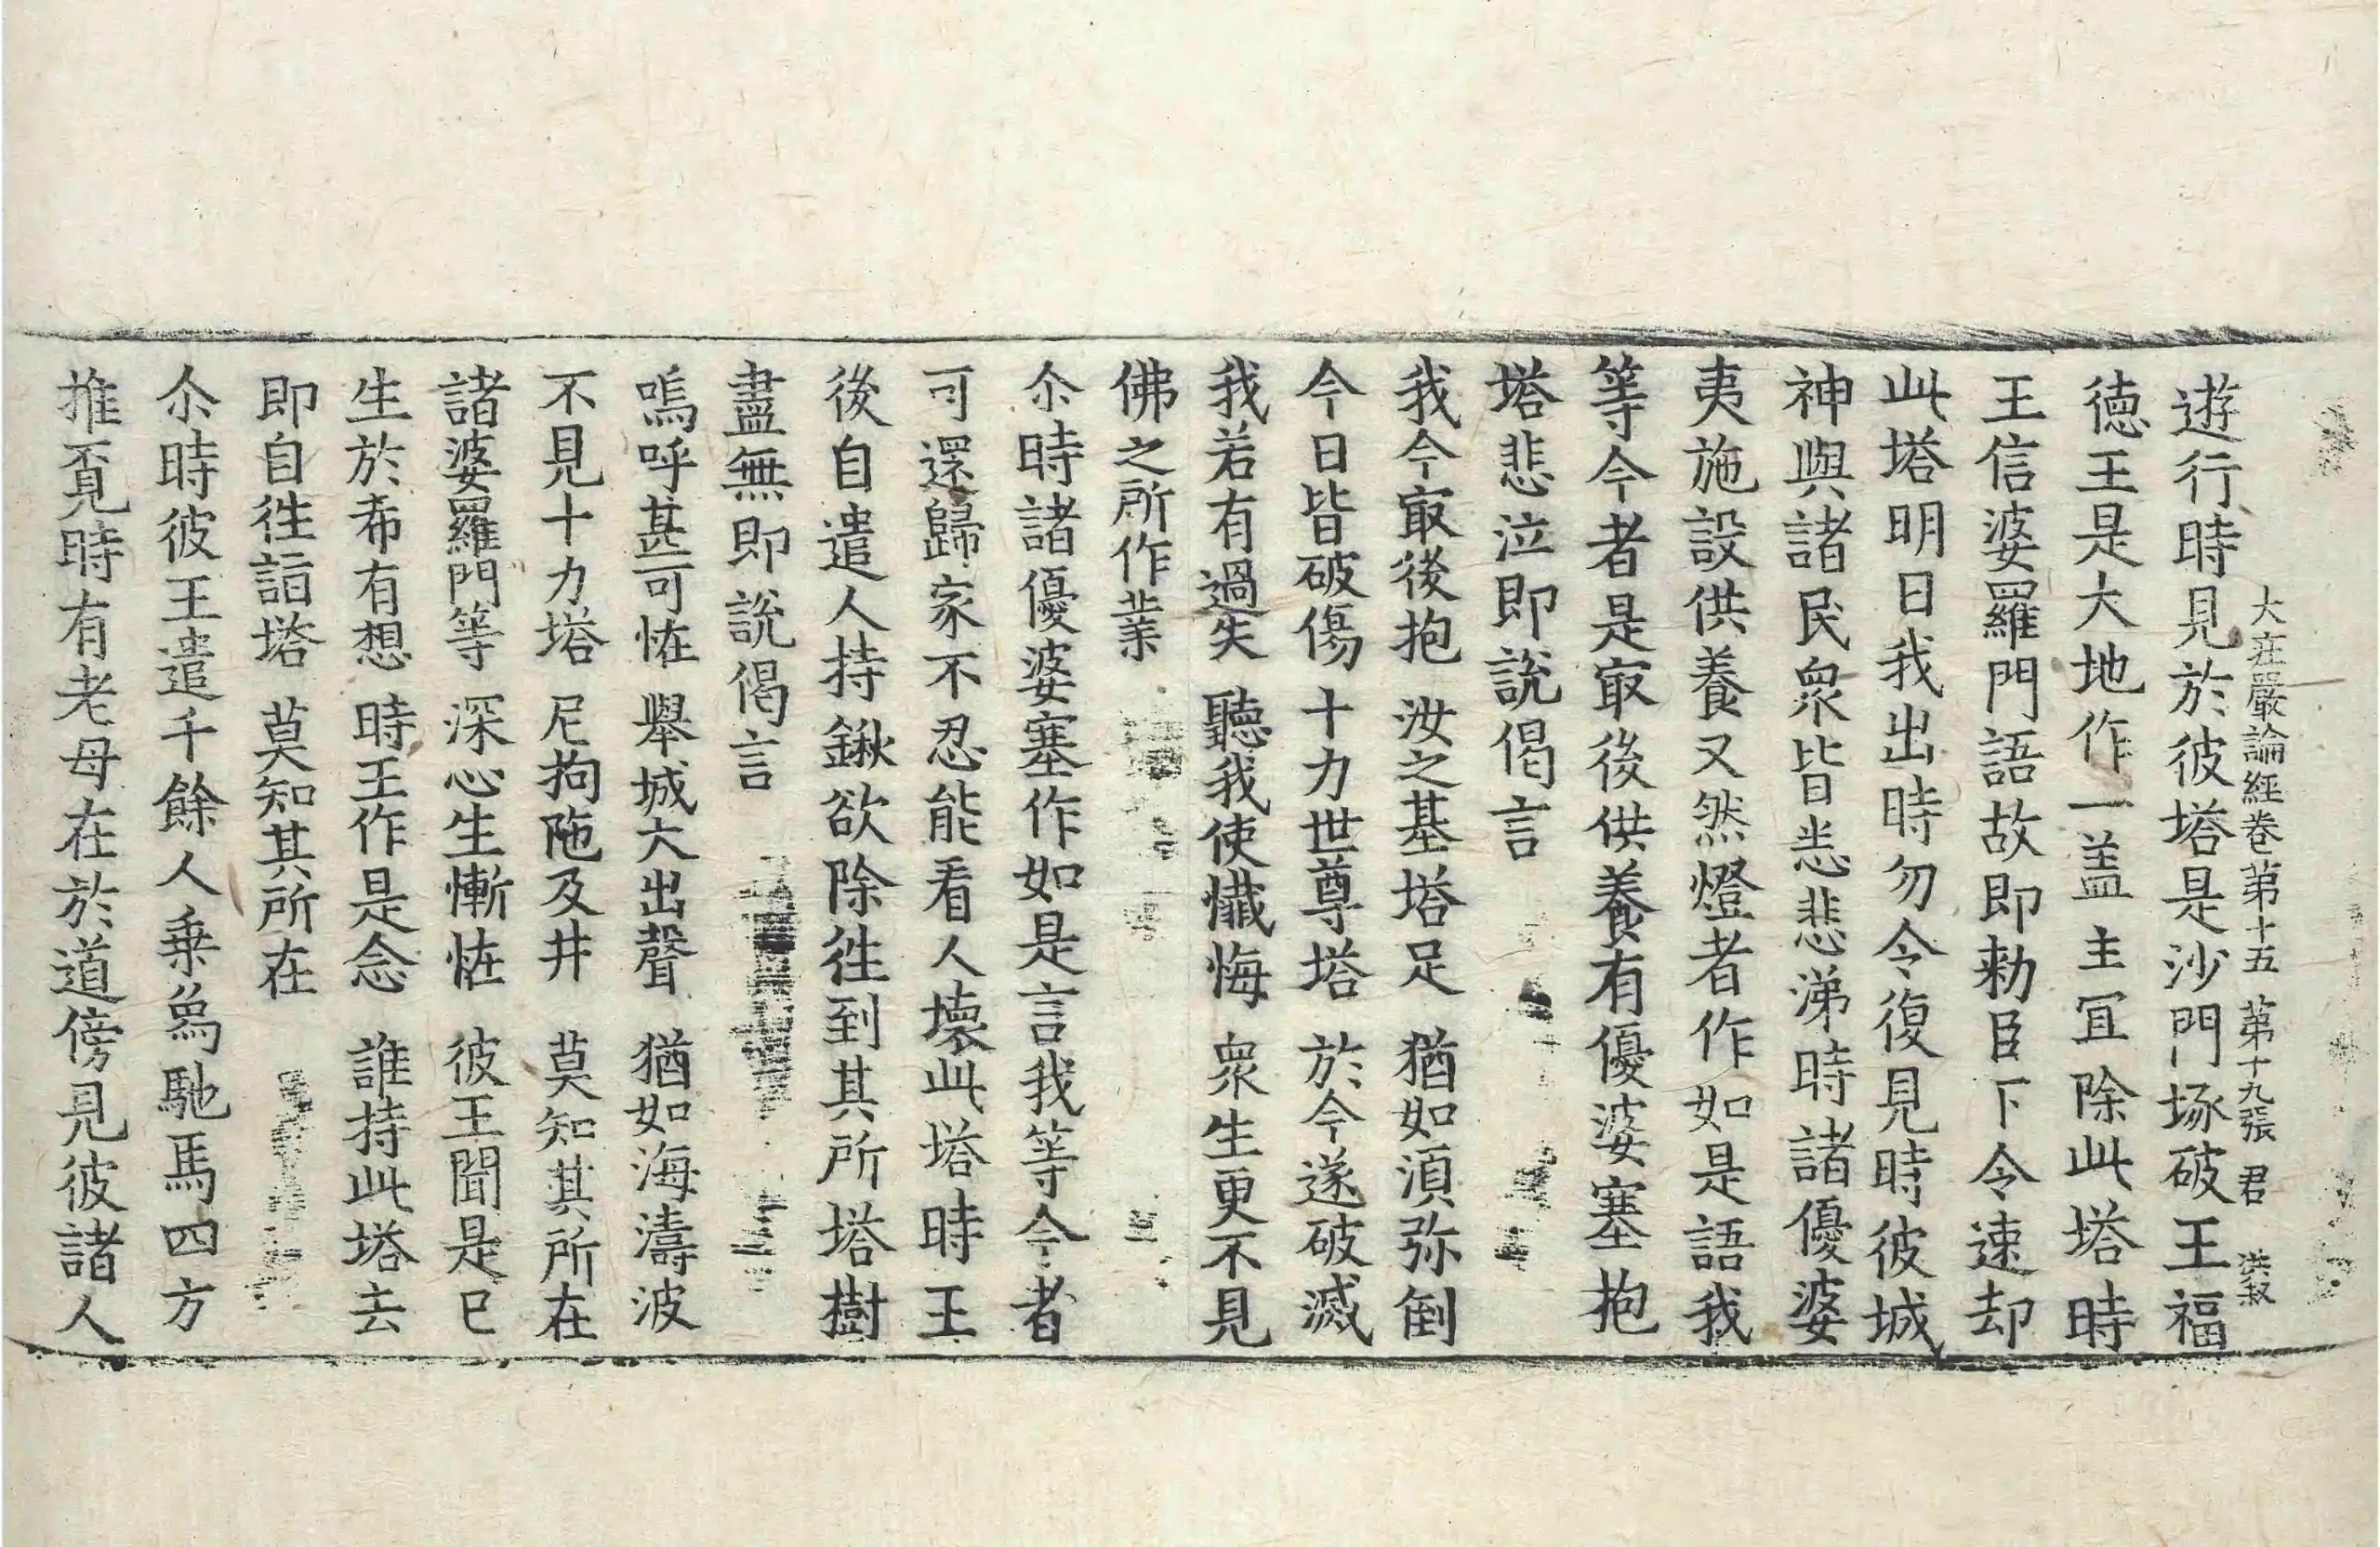 大莊嚴論經卷第十五 第十九張 君 洪叔
遊行時見於彼塔是沙門塚破王福
德王是大地作一盖主冝除此塔時
王信婆羅門語故即勑臣下令速却
此塔明日我出時勿令復見時彼城
神與諸民衆皆悉悲涕時諸優婆
夷施設供養又然燈者作如是語我
等今者是㝡後供養有優婆塞抱
塔悲泣即說偈言
我今㝡後抱 汝之基塔足 猶如湏弥倒
今日皆破傷 十力世尊塔 於今遂破滅
我若有過失 聽我使懺悔 衆生更不見
佛之所作業
尒時諸優婆塞作如是言我等今者
可還歸家不忍能看人壞此塔時王
後自遣人持鍬欲除徃到其所塔樹
盡無即說偈言
嗚呼甚可恠 舉城大出聲 猶如海濤波
不見十力塔 尼拘陁及井 莫知其所在
諸婆羅門等 深心生慚恠 彼王聞是已
生於希有想 時王作是念 誰持此塔去
即自徃詣塔 莫知其所在
尒時彼王遣千餘人乗烏馳馬四方
推覔時有老母在於道傍見彼諸人